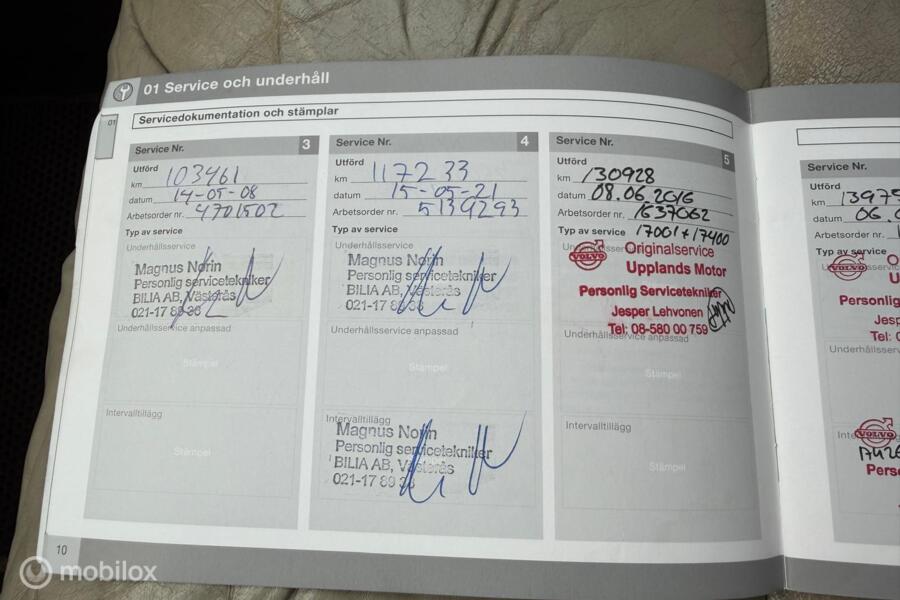 01 Service och underhåll
01
Servicedokumentation och stämplar
Service Nr. 3
Utförd
km 103461
datum 14-05-08
Arbetsorder nr. 4701502
Typ av service
Underhållsservice
Magnus Norin
Personlig servicetekniker
BILIA AB, Västerås
021-17 89 38
Underhållsservice anpassad
Stämpel
Intervalltillägg
Stämpel
Service Nr. 4
Utförd
km 117233
datum 15-05-21
Arbetsorder nr. 5139293
Typ av service
Underhållsservice
Magnus Norin
Personlig servicetekniker
BILIA AB, Västerås
021-17 89 38
Underhållsservice anpassad
Stämpel
Intervalltillägg
Magnus Norin
Personlig servicetekniker
BILIA AB, Västerås
021-17 89 38
Service Nr. 5
Utförd
km 130928
datum 08.06.2016
Arbetsorder nr. 1637062
Typ av service 17001+17400
VOLVO
Originalservice
Upplands Motor
Personlig Servicetekniker
Jesper Lehvonen
Tel: 08-580 00 759
Underhållsservice anpassad
Stämpel
Intervalltillägg
Stämpel
Service Nr.
Utförd
km 13975
datum 06.
Arbetsorder nr.
Typ av service
VOLVO
Personlig
Jesp
Tel:
Underhållsserv
VOLVO
Perso
10
mobilox